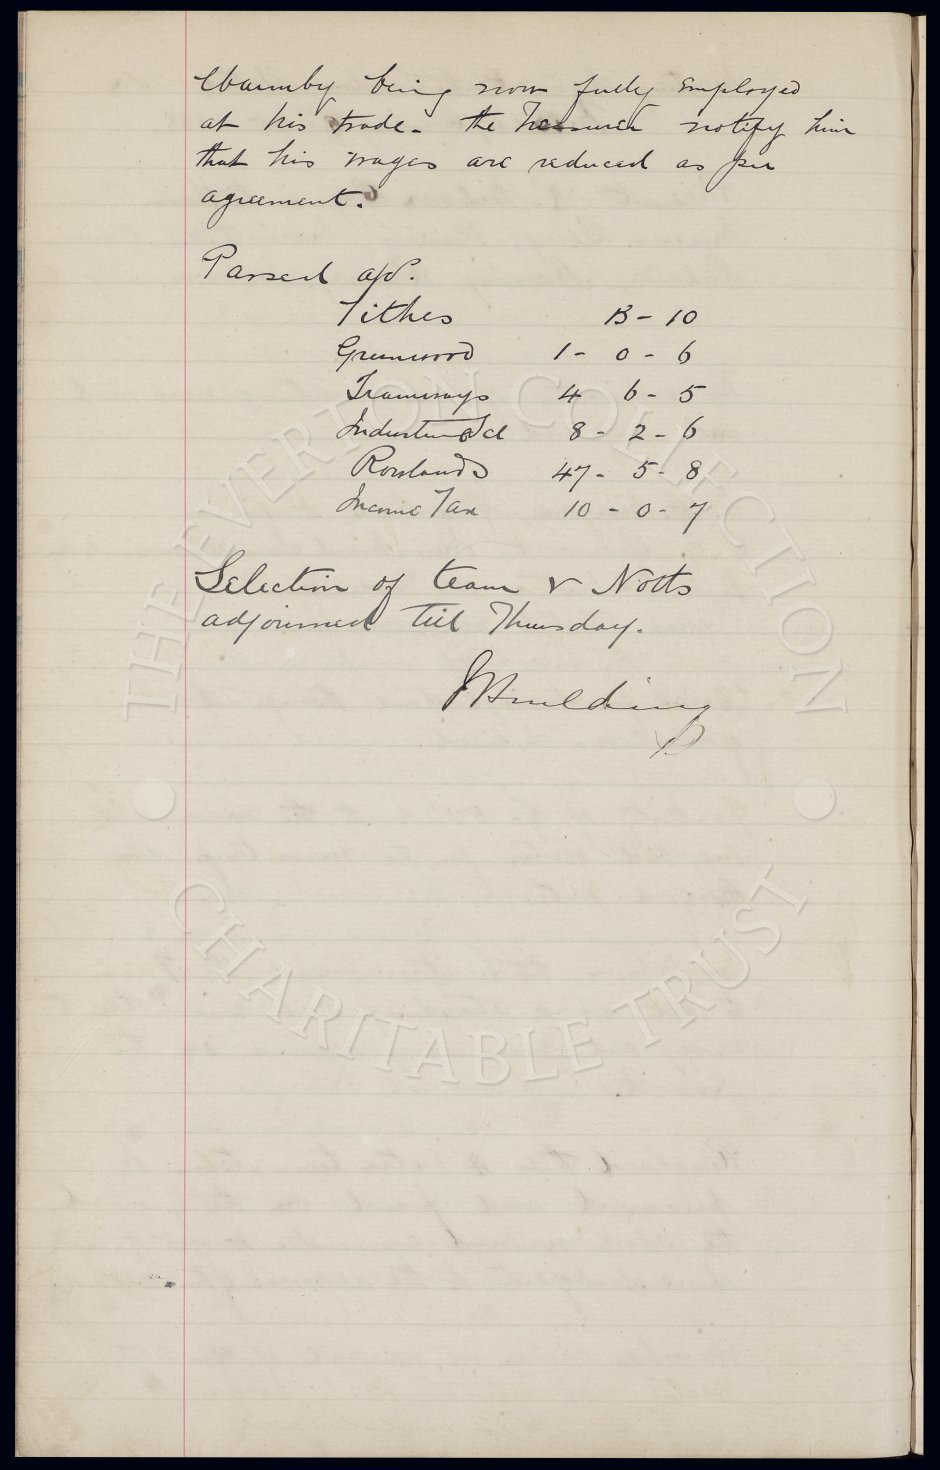 Warmby being now fully employed
at his trade - the Treasurer notify him
that his wages are reduced as per
agreement.
Passed a/cs.
Tithes 13 - 10
Greenwood 1 - 0 - 6
Tramways 4 6 - 5
Industrial Scl 8 - 2 - 6
Rowlands 47 - 5 - 8
Income Tax 10 - 0 - 7
Selection of team v Notts
adjourned till Thursday.
THE EVERTON COLLECTION
CHARITABLE TRUST